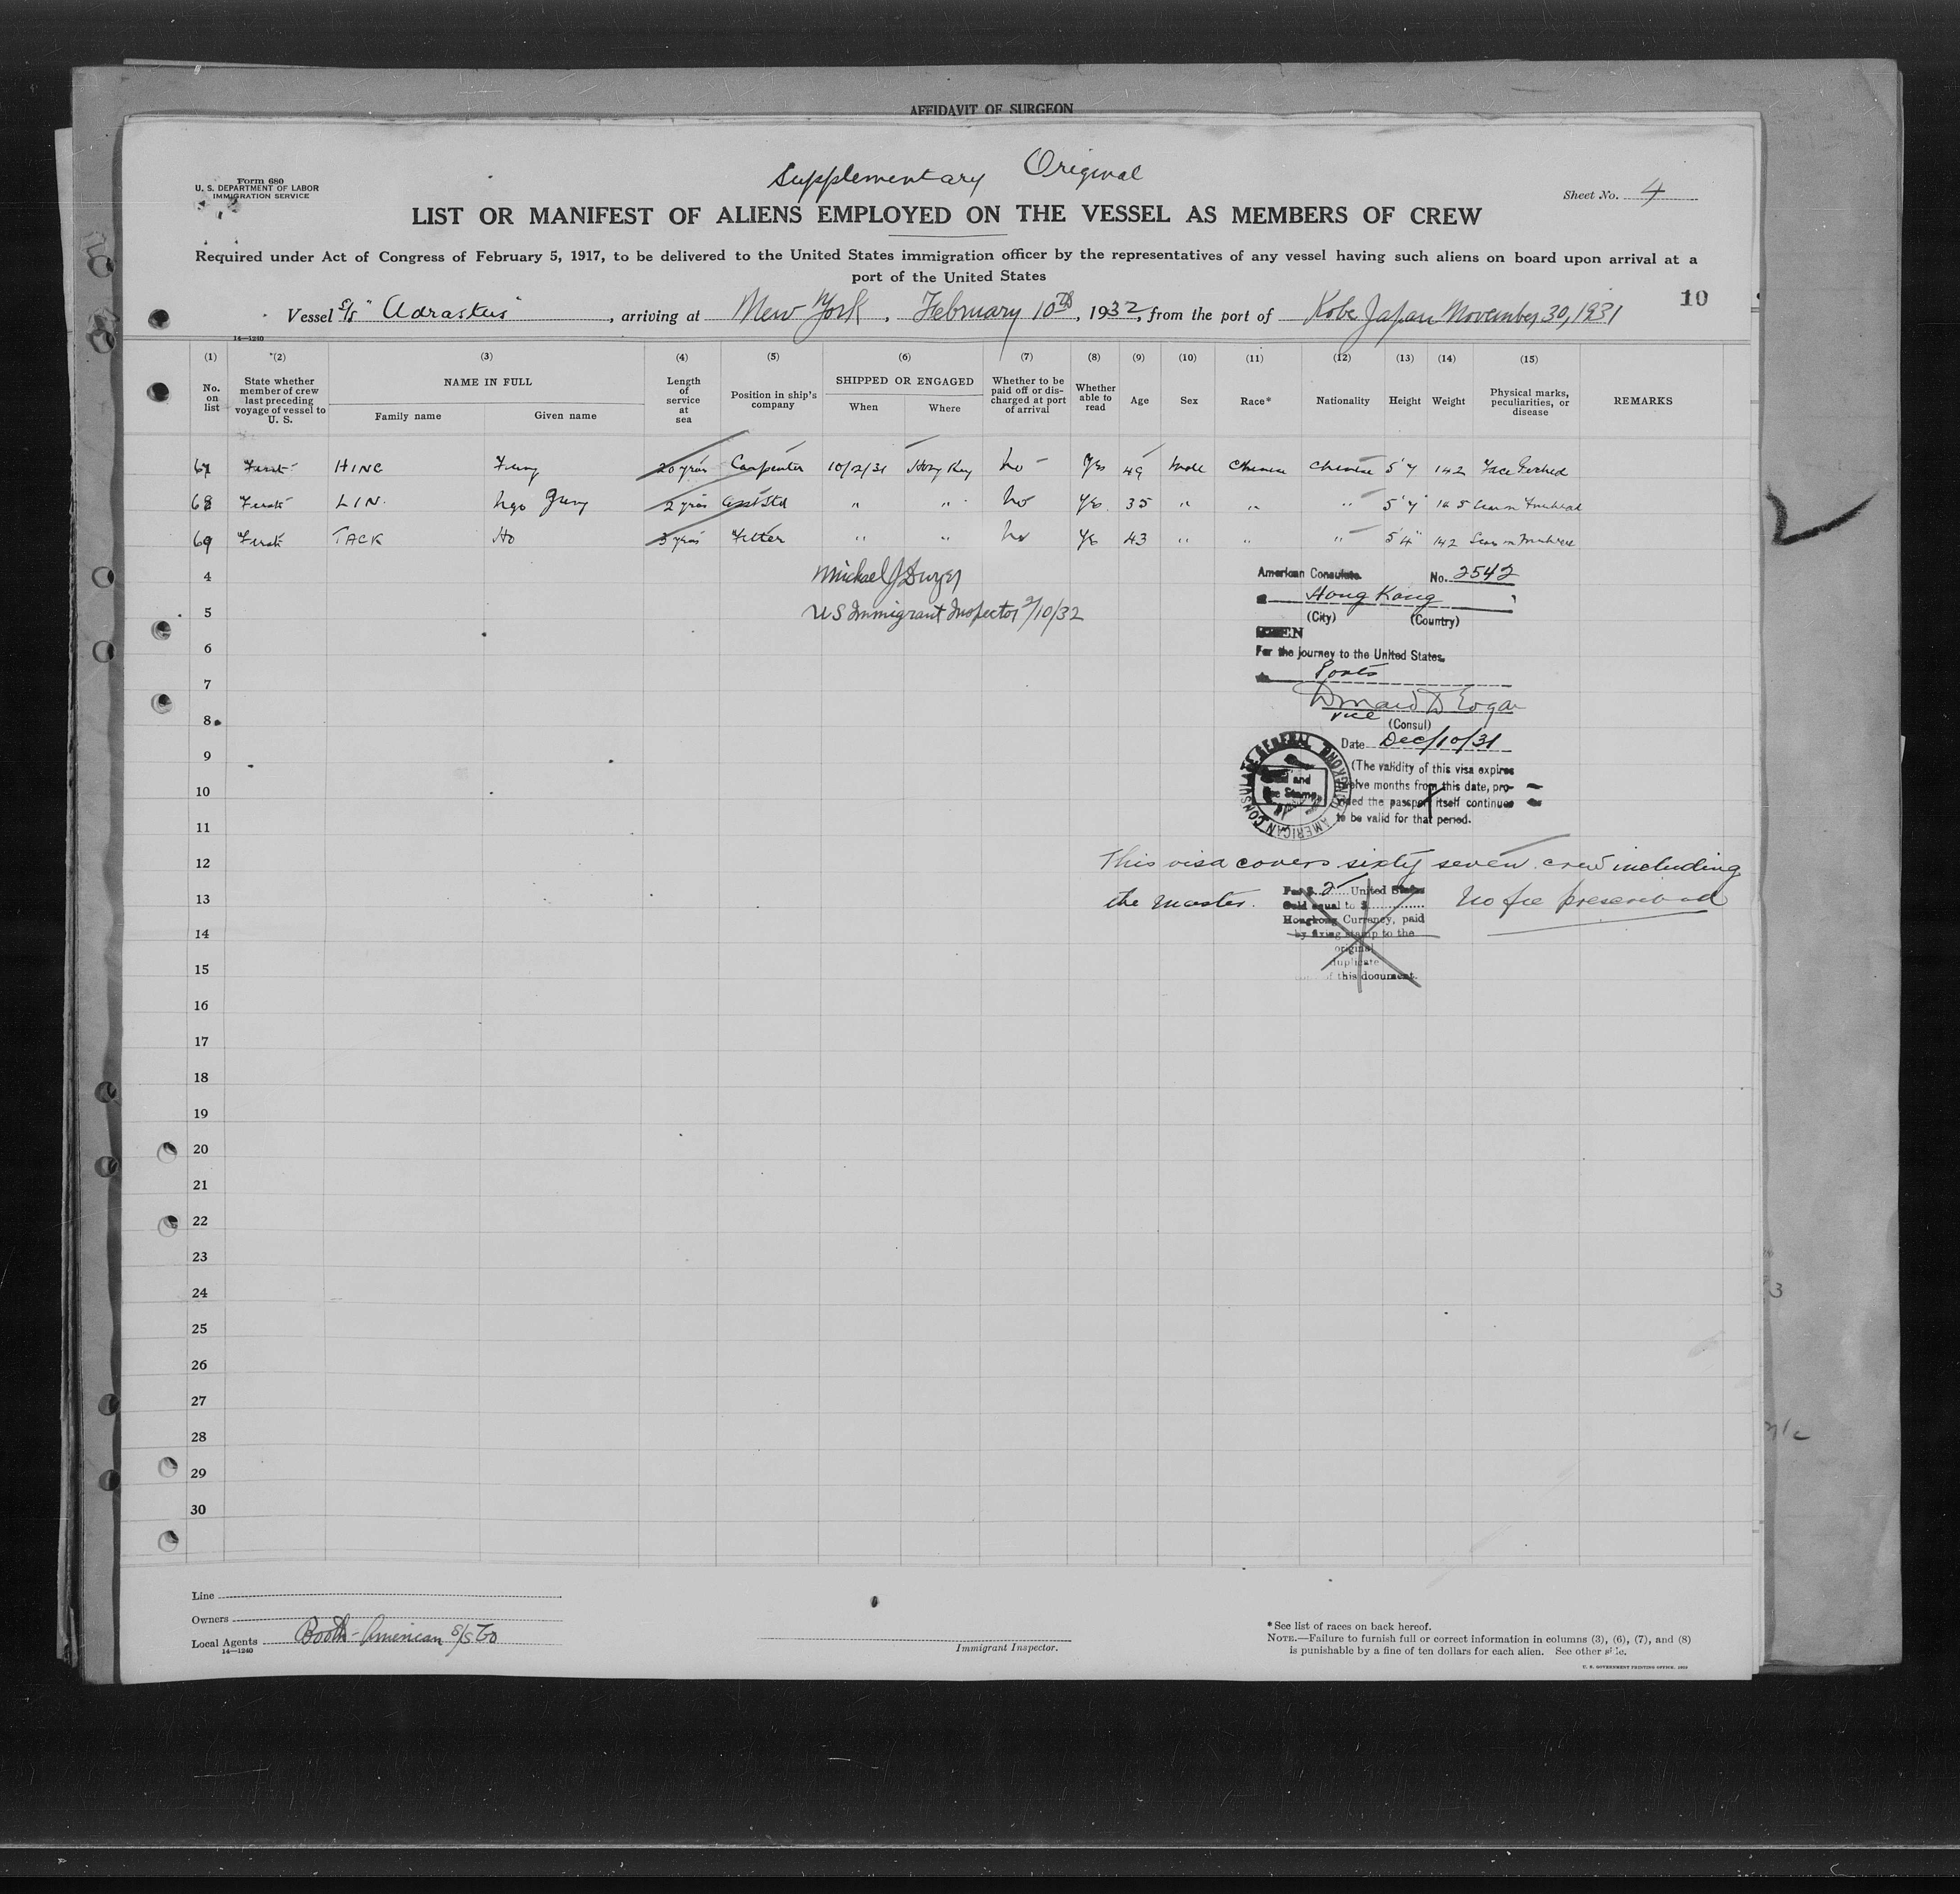 AFFIDAVIT OF SURGEON
Form 680
U. S. DEPARTMENT OF LABOR
IMMIGRATION SERVICE
Supplementary Original
Sheet No. 4
LIST OR MANIFEST OF ALIENS EMPLOYED ON THE VESSEL AS MEMBERS OF CREW
Required under Act of Congress of February 5, 1917, to be delivered to the United States immigration officer by the representatives of any vessel having such aliens on board upon arrival at a
port of the United States
10
Vessel S/S "Adrastus", arriving at New York, February 10th, 1932, from the port of Kobe Japan November 30, 1931
14—1240
(1) (2) (3) (4) (5) (6) (7) (8) (9) (10) (11) (12) (13) (14) (15)
No. on list
State whether member of crew last preceding voyage of vessel to U. S.
NAME IN FULL
Family name Given name
Length of service at sea
Position in ship's company
SHIPPED OR ENGAGED
When Where
Whether to be paid off or discharged at port of arrival
Whether able to read
Age
Sex
Race*
Nationality
Height
Weight
Physical marks, peculiarities, or disease
REMARKS
67 First HING Fung 20 yrs Carpenter 10/2/31 Hong Kong No Yes 49 Male Chinese Chinese 5'7 142 Face
68 First LIN. Ngo 2 yrs Asst Std " " No Yes 35 " " " 5'7" Scar on Forehead
69 First TACK Ho 3 yrs Fitter " " No Yes 43 " " " 5'4" 142 Scar on Forehead
4
Michael J Dwyer
5
US Immigrant Inspector 2/10/32
American Consulate No. 2542
Hong Kong
(City) (Country)
SEEN
For the journey to the United States.
Ports
Donald D Edgar
Vice
(Consul)
Date Dec/10/31
(The validity of this visa expires
twelve months from this date, pro-
vided the passport itself continues
to be valid for that period.
AMERICAN CONSULATE GENERAL HONGKONG
This visa covers sixty seven crew including
the Master.
No fee prescribed
Fee $ 2 United States
Gold equal to $
Hongkong Currency, paid
by fixing stamp to the
original
duplicate
of this document.
6
7
8
9
10
11
12
13
14
15
16
17
18
19
20
21
22
23
24
25
26
27
28
29
30
Line
Owners
Local Agents Booth-American S/S Co
14—1240
Immigrant Inspector.
* See list of races on back hereof.
NOTE.—Failure to furnish full or correct information in columns (3), (6), (7), and (8)
is punishable by a fine of ten dollars for each alien. See other side.
U. S. GOVERNMENT PRINTING OFFICE